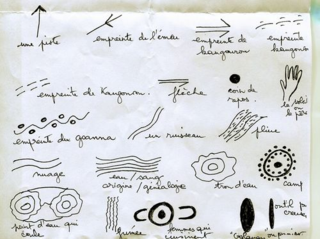 une piste
empreinte de l'émeu
empreinte de
kangourou
empreinte
kangourou
empreinte de Kangourou.
flèche
coin de
repos.
empreinte du goanna
un ruisseau
pluie
nuage
eau/sang
origine/généalogie
trou d'eau
camp
point d'eau qui
coule
fumée
femmes qui